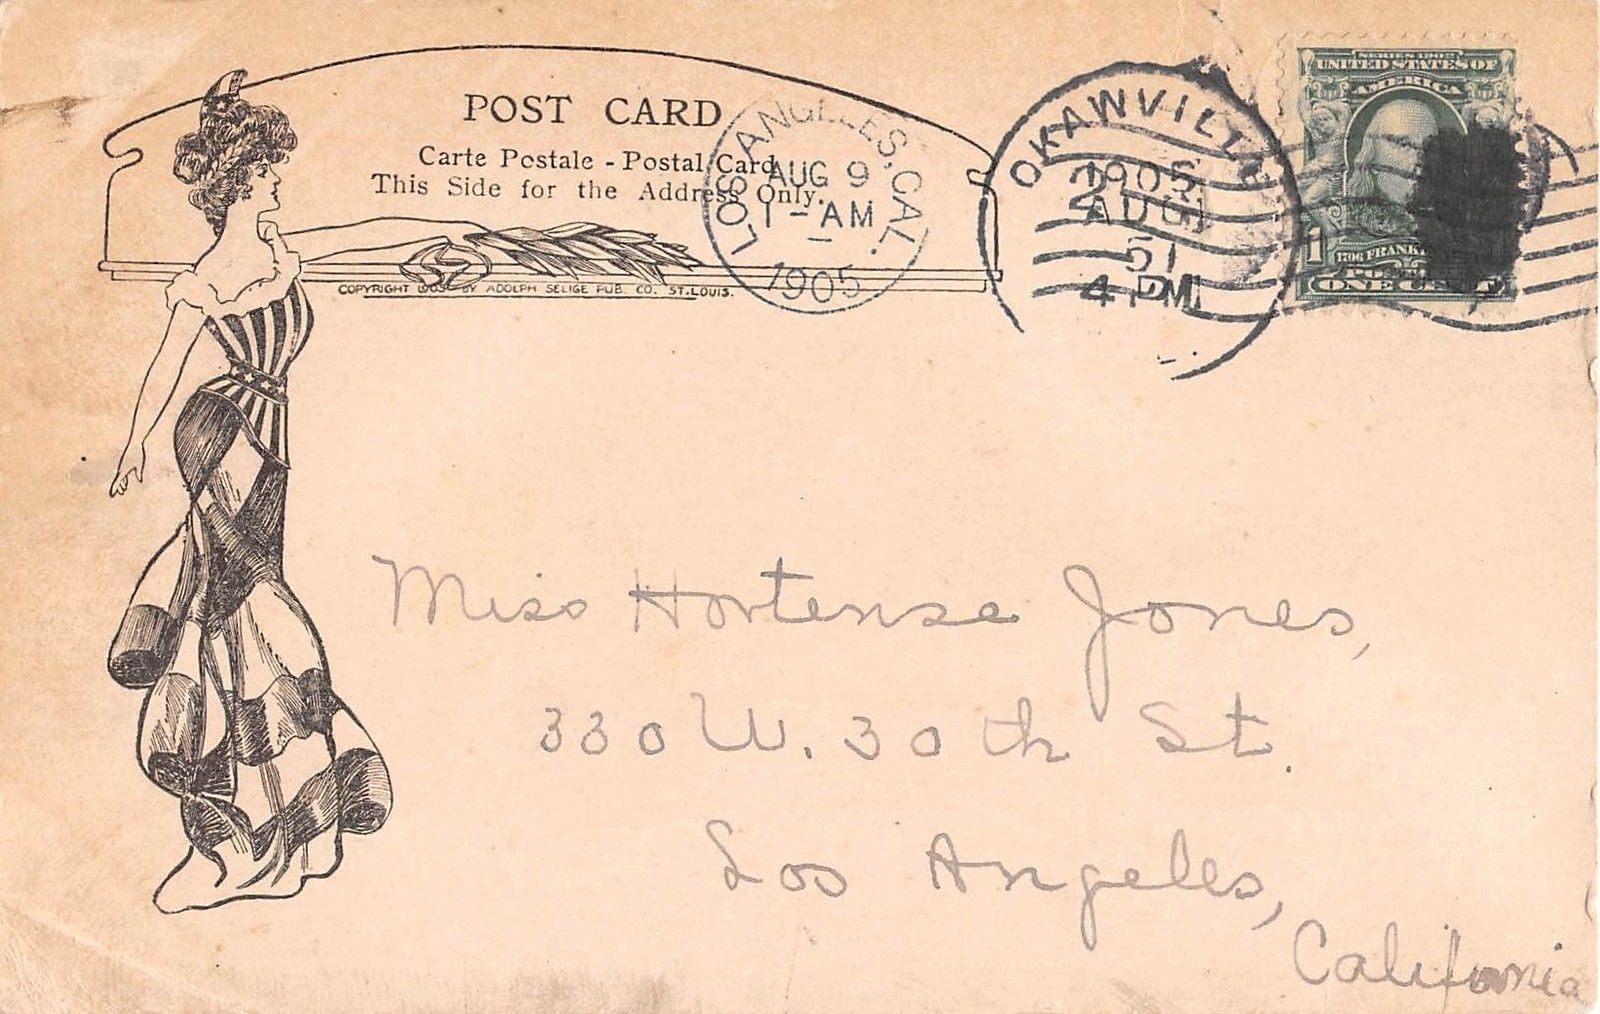 POST CARD
Carte Postale - Postal Card
This Side for the Address Only.
COPYRIGHT 1905 BY ADOLPH SELIGE PUB. CO. ST. LOUIS.
LOS ANGELES, CAL.
AUG 9
1 - AM
1905
OKAWVILLE
1905
AUG
4 PM
SERIES 1902
UNITED STATES OF
AMERICA
1
1706 FRANKLIN
ONE CENT
Miss Hortense Jones,
330 W. 30th St.
Los Angeles,
California